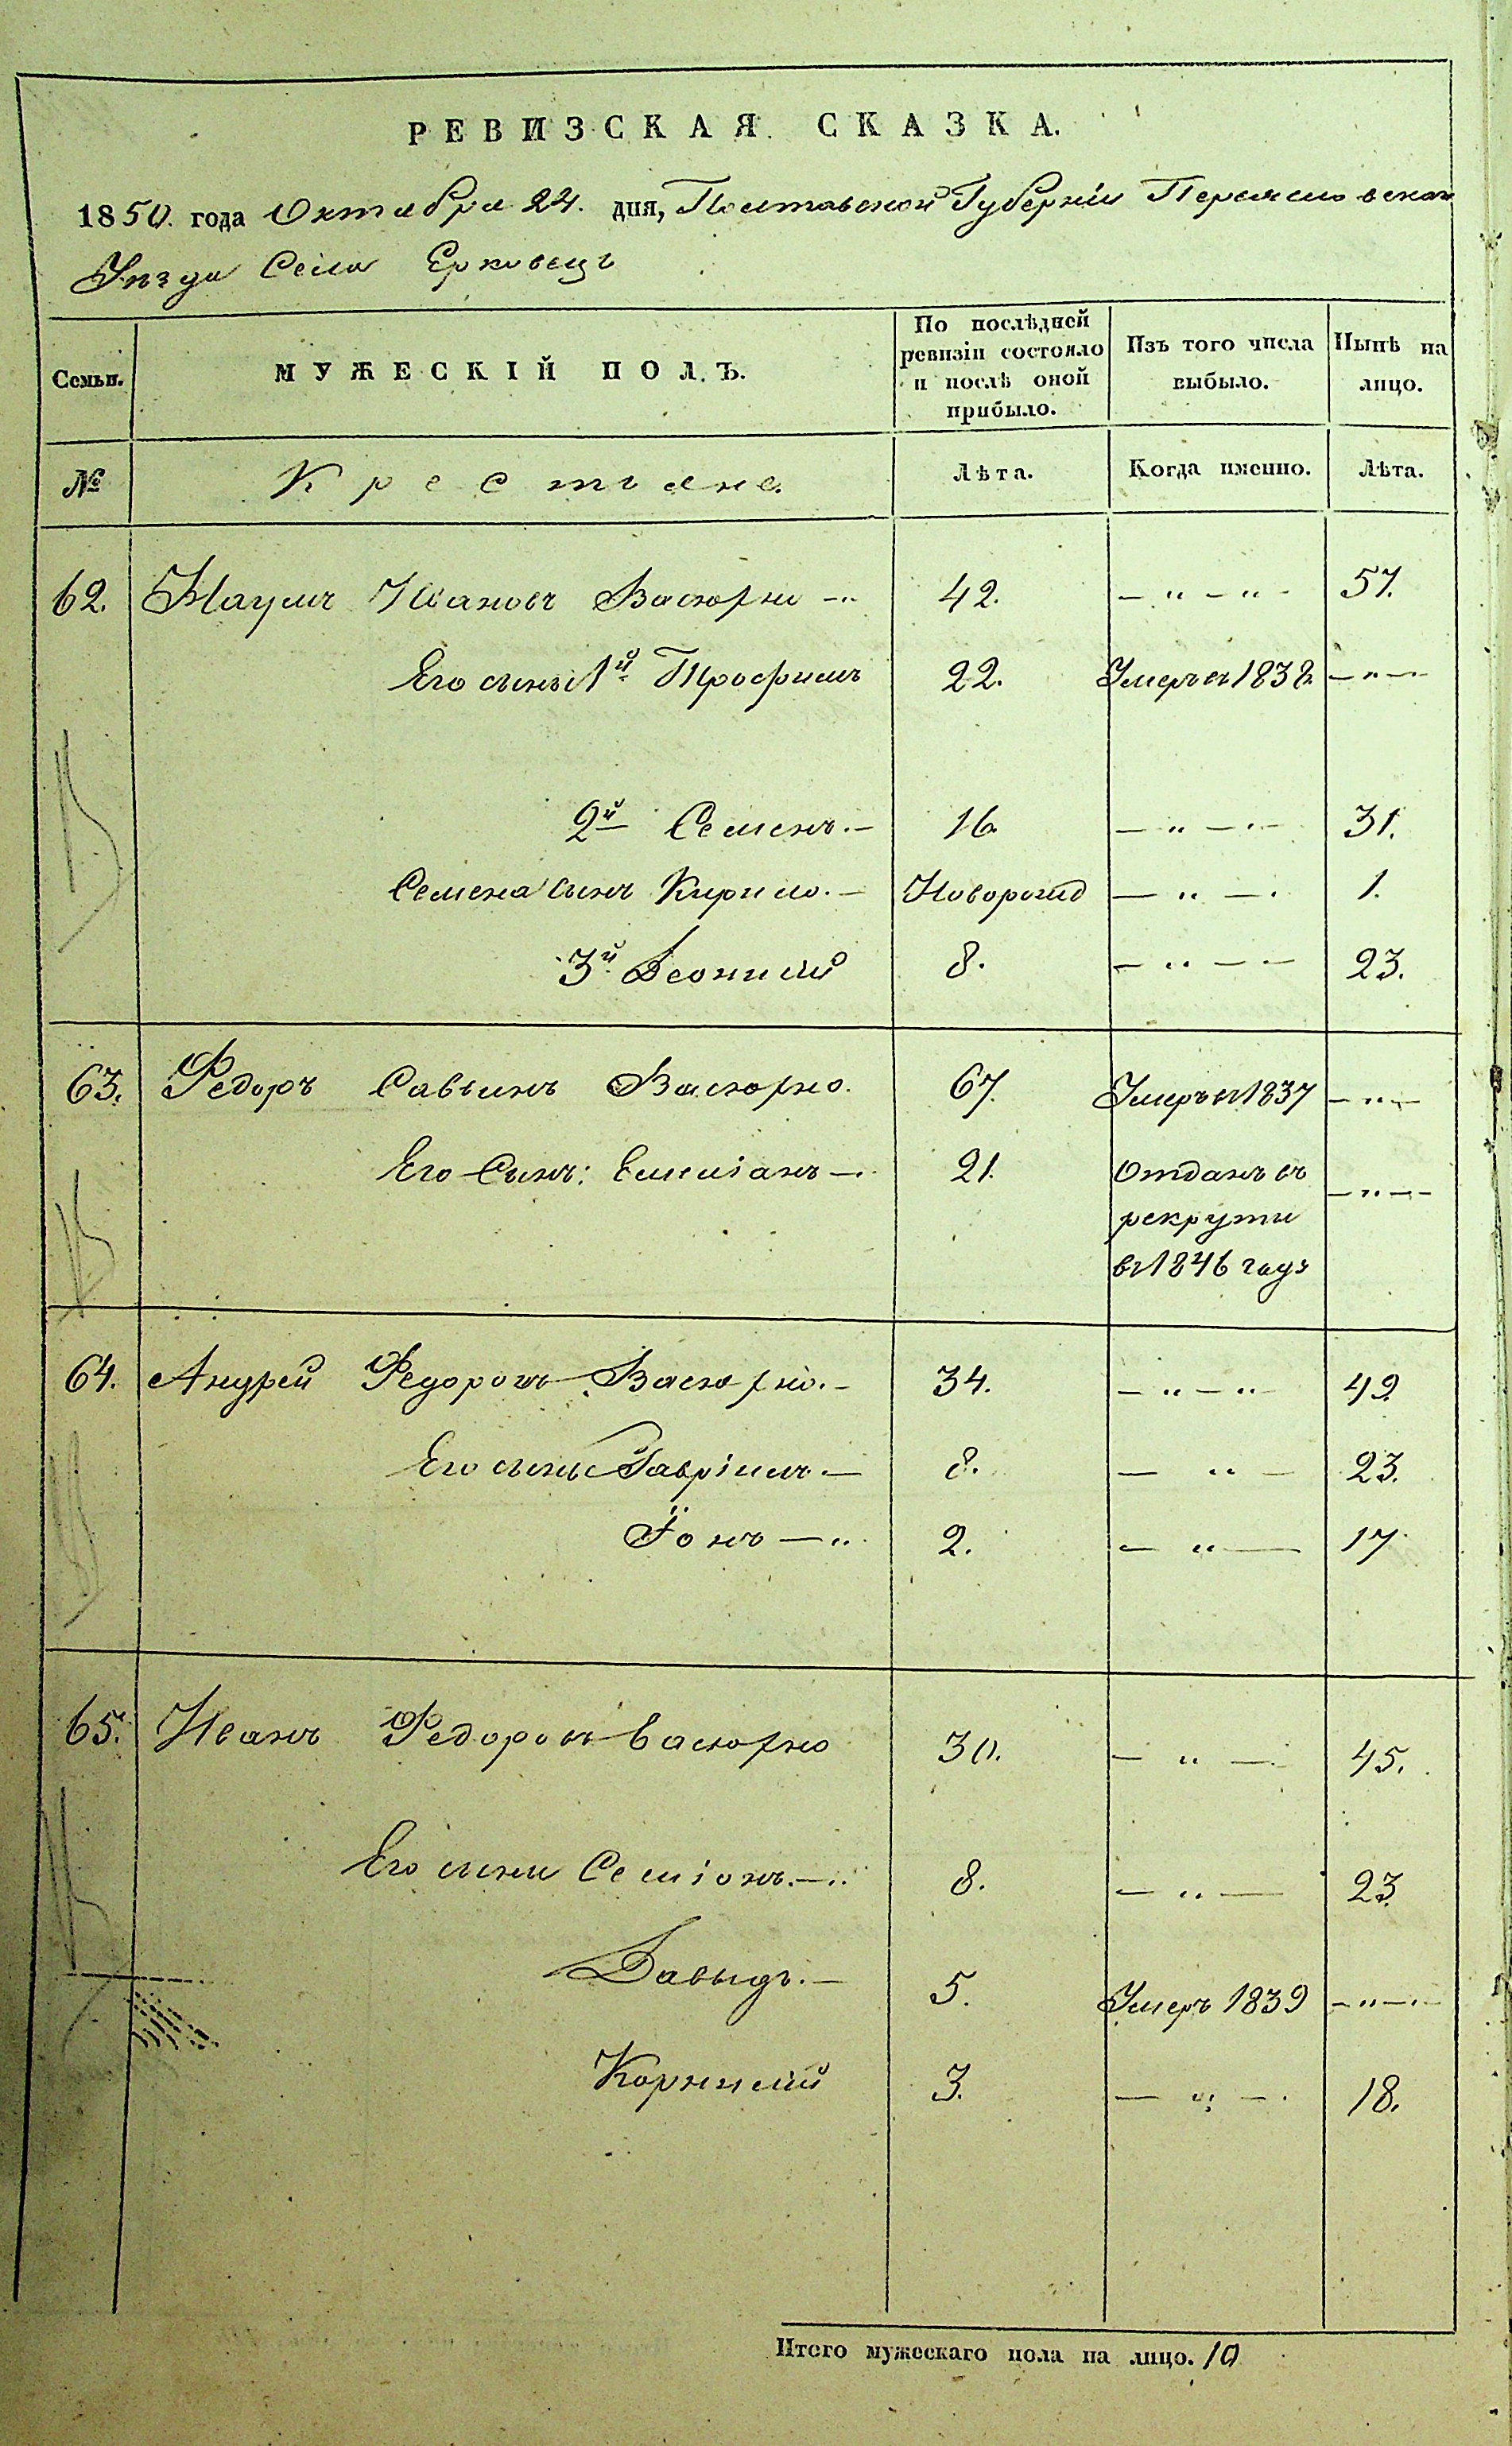 РЕВИЗСКАЯ СКАЗКА.
1850. года Октября 24. дня, Полтавской Губерніи Переяславскаго
Уѣзда Села Ерковецъ
Семьи.
МУЖЕСКІЙ ПОЛЪ.
По послѣдней
ревизіи состояло
и послѣ оной
прибыло.
Изъ того числа
выбыло.
Нынѣ на
лицо.
№
Крестьяне.
Лѣта.
Когда именно.
Лѣта.
62. Наумъ Ивановъ Васюрно 42. 57.
Его сыны 1й Трофимъ 22. Умеръ въ 1838.
2й Семенъ. 16. 31.
Семена сынъ Кирило. Новорожд 1.
3й Леонтій 8. 23.
63. Федоръ Саввинъ Васюрно. 67. Умеръ въ 1837
Его Сынъ: Емиліанъ 21. Отданъ въ
рекруты
въ 1846 году
64. Андрей Федоровъ Васюрно. 34. 49
Его сыны Гавріилъ. 8. 23.
Їонъ 2. 17
65. Иванъ Федоровъ Васюрно 30. 45.
Его сыны Семіонъ. 8. 23
Давыдъ. 5. Умеръ 1839
Корнилій 3. 18.
Итого мужескаго пола на лицо. 10